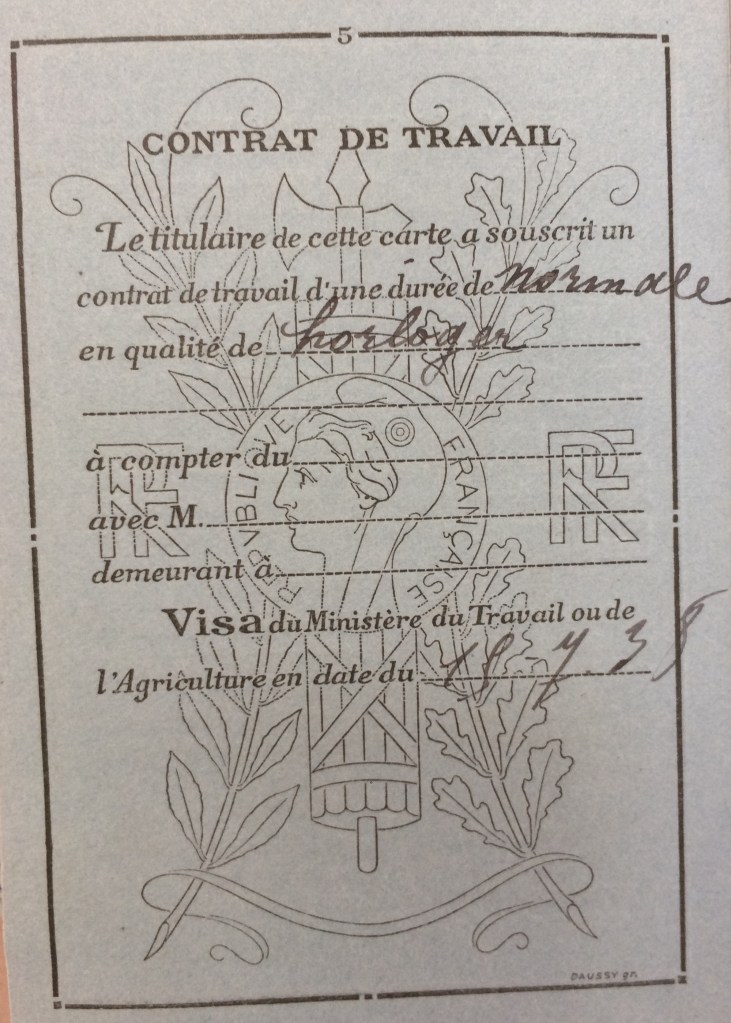 5
CONTRAT DE TRAVAIL
Le titulaire de cette carte a souscrit un
contrat de travail d'une durée de normale
en qualité de horloger
à compter du
avec M.
demeurant à
RF
RÉPVBLIQVE FRANÇAISE
RF
Visa du Ministère du Travail ou de
l'Agriculture en date du 18.7.35
DAUSSY gr.